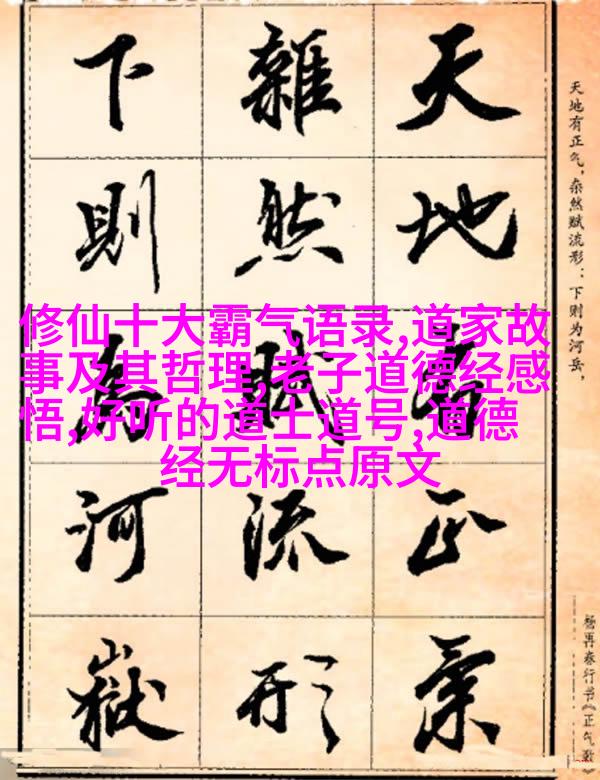 天地有正气，杂然赋流形：下则为河岳，
天地有正氣
雜然賦流形
下則為河嶽
修仙十大霸气语录,道家故
事及其哲理,老子道德经感
悟,好听的道士道号,道德
经无标点原文
杨再春行书《正气歌》